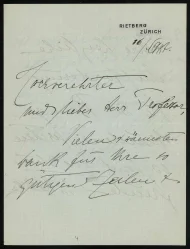 RIETBERG
ZÜRICH
Hochverehrter
und lieber Herr Professor,
Vielen & wärmsten
Dank für Ihre so
gütigen Zeilen &